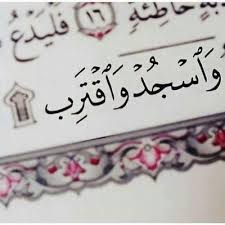 خَاطِئَةٍ ١٦ فَلْيَدْعُ
وَٱسْجُدْ وَٱقْتَرِب ۩